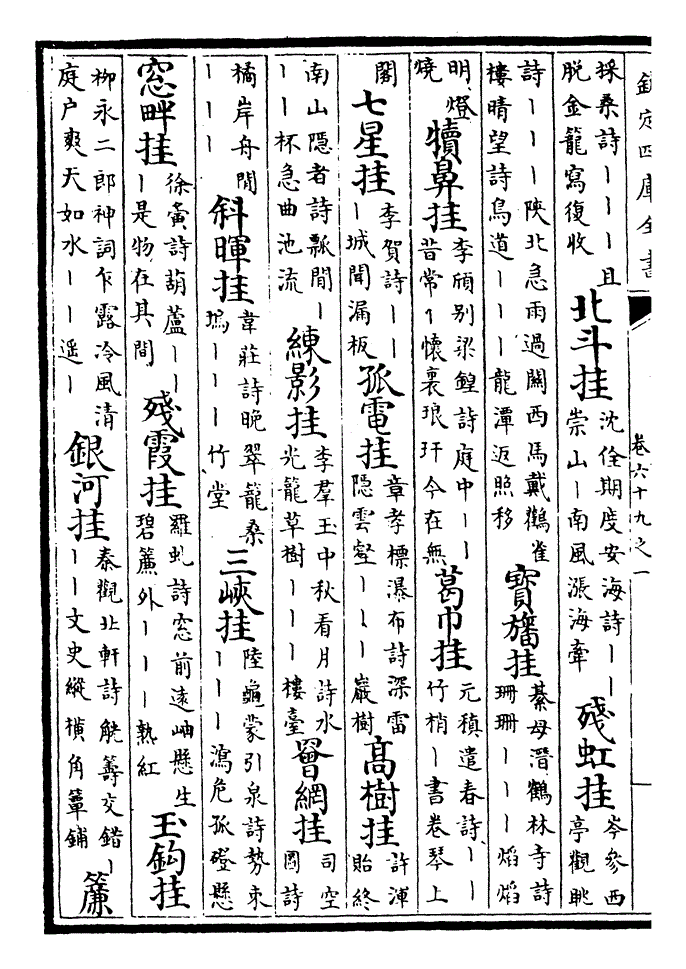 欽定四庫全書 卷六十九之一
採桑詩丨丨丨且脱金籠寫復收 北斗挂 沈佺期度安海詩丨丨崇山丨南風漲海牽 殘虹挂 岑參西亭觀眺
詩丨丨丨陝北急雨過關西馬戴鸛雀樓晴望詩鳥道丨丨丨龍潭返照移 寶旛挂 綦母潛鶴林寺詩珊珊丨丨丨焰焰
明燈燒 犢鼻挂 李頎别梁鍠詩庭中丨丨昔常丨懷裏琅玕今在無 葛巾挂 元稹遣春詩丨丨竹梢丨書卷琴上
閣 七星挂 李賀詩丨丨丨城聞漏板 孤電挂 章孝標瀑布詩深雷隱雲壑丨丨丨巖樹 高樹挂 許渾貽終
南山隱者詩瓢閒丨丨丨杯急曲池流 練影挂 李羣玉中秋看月詩水光籠草樹丨丨丨樓臺 罾網挂 司空圖詩
橘岸舟閒丨丨丨 斜暉挂 韋莊詩晚翠籠桑塢丨丨丨竹堂 三峽挂 陸龜蒙引泉詩勢束丨丨丨瀉危孤磴懸
窓畔挂 徐夤詩葫蘆丨丨丨是物在其間 殘霞挂 羅虬詩窓前遠岫懸生碧簾外丨丨丨熟紅 玉鈎挂
柳永二郎神詞乍露冷風清庭户爽天如水丨丨遥丨 銀河挂 秦觀北軒詩觥籌交錯丨丨丨文史縱横角簟鋪 簾